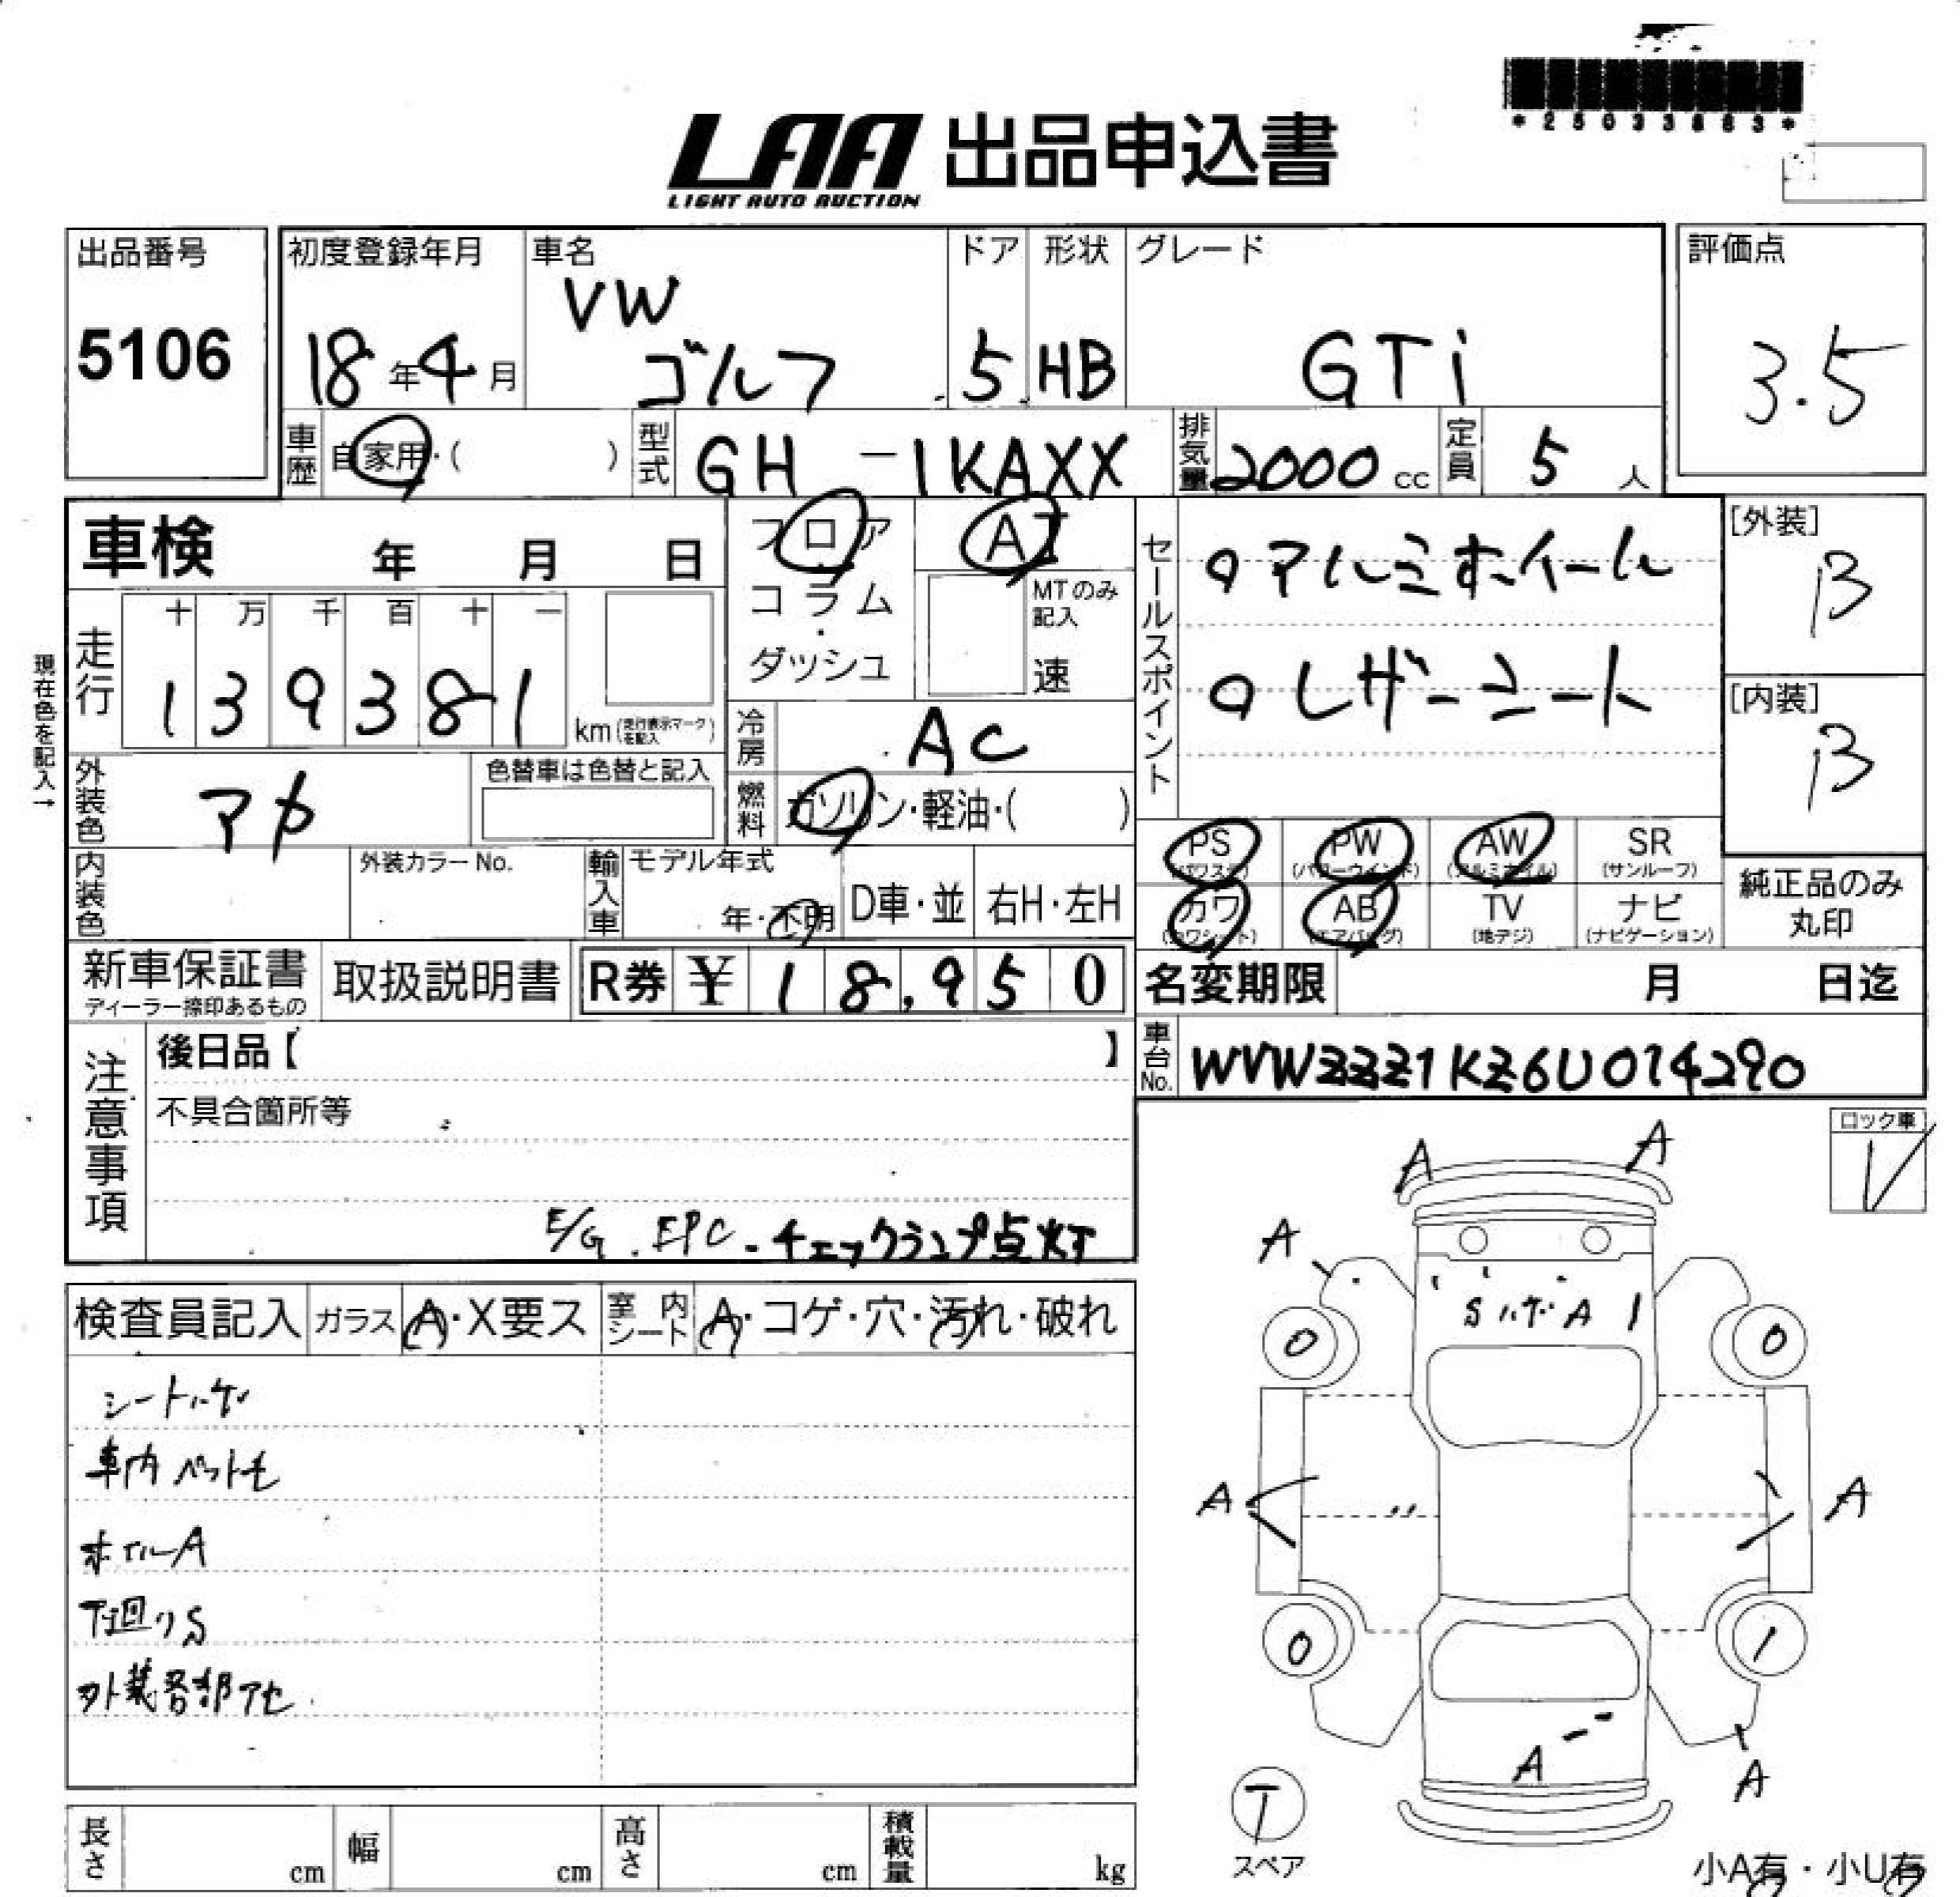 *25033883*
LAA 出品申込書
LIGHT AUTO AUCTION
出品番号 初度登録年月 車名 ドア 形状 グレード 評価点
5106 18年4月 VW ゴルフ 5 HB GTi 3.5
車歴 自家用・( ) 型式 GH-1KAXX 排気量 2000cc 定員 5人
車検 年 月 日 フロア AT セールスポイント ○アルミホイール [外装] B
現在色を記入→
走行 十 万 千 百 十 一 コラム・ダッシュ MTのみ記入 速
139381 km (走行表示マークを記入) ○レザーシート [内装] B
冷房 AC
外装色 アカ 色替車は色替と記入 燃料 ガソリン・軽油・( )
PS (パワステ) PW (パワーウインド) AW (アルミホイル) SR (サンルーフ)
内装色 外装カラーNo. 輸入車 モデル年式 年・不明 D車・並 右H・左H
カワ (カワシート) AB (エアバッグ) TV (地デジ) ナビ (ナビゲーション) 純正品のみ丸印
新車保証書 ディーラー捺印あるもの 取扱説明書 R券 ¥18,950 名変期限 月 日迄
注意事項 後日品【 】 車台No. WVWZZZ1KZ6U074290
不具合箇所等
E/G.EPC.チェックランプ点灯
ロック車
レ
検査員記入 ガラス A・X要ス 室内シート A・コゲ・穴・汚れ・破れ
シートハゲ
車内ペット毛
ホイルA
下廻りS
外装各部アセ
A A
A
SハゲA1
0 0
A A
0 1
A A
T
スペア
長さ cm 幅 cm 高さ cm 積載量 kg
小A有・小U有